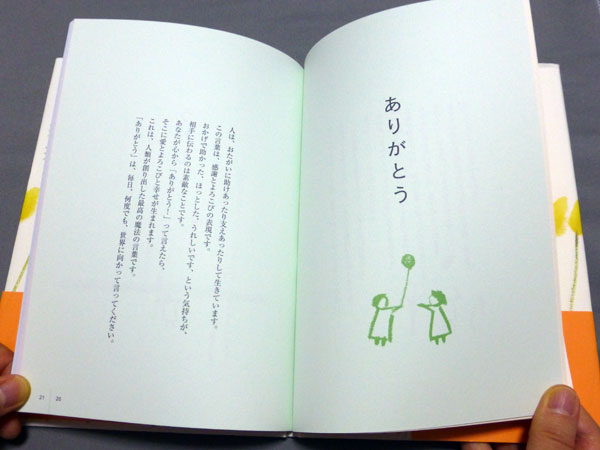 ありがとう
人は、おたがいに助けあったり支えあったりして生きています。
この言葉は、感謝とよろこびの表現です。
おかげで助かった、ほっとした、うれしいです、という気持ちが、
相手に伝わるのは素敵なことです。
あなたが心から「ありがとう！」って言えたら、
そこに愛とよろこびと幸せが生まれます。
これは、人類が創り出した最高の魔法の言葉です。
「ありがとう」は、毎日、何度でも、世界に向かって言ってください。
21 20